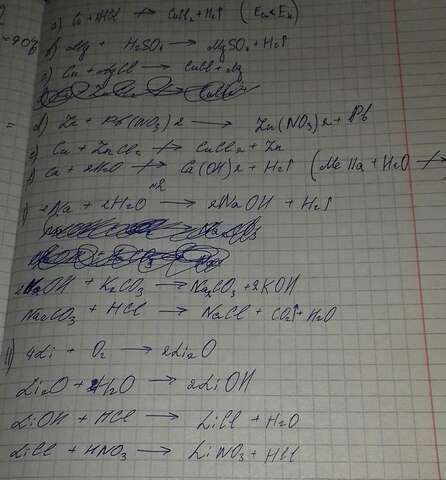 a) Cu + HCl ↛ CuCl₂ + H₂↑ (E
b) Mg + H₂SO₄ → MgSO₄ + H₂↑
Cu + AgCl → CuCl + Ag
d) Zn + Pb(NO₃)2 → Zn(NO₃)2 + Pb
e) Cu + ZnCl₂ ↛ CuCl2 + Zn
Ca + 2H₂O ↛ Ca(OH)2 + H₂↑ (Me IIa + H₂O ↛
№2
I) 2Na + 2H₂O → 2NaOH + H₂↑
2NaOH + K₂CO₃ → Na₂CO₃ + 2KOH
Na₂CO₃ + HCl → NaCl + CO₂↑ + H₂O
II) 4Li + O₂ → 2Li₂O
Li₂O + H₂O → 2LiOH
LiOH + HCl → LiCl + H₂O
LiCl + HNO₃ → LiNO₃ + HCl